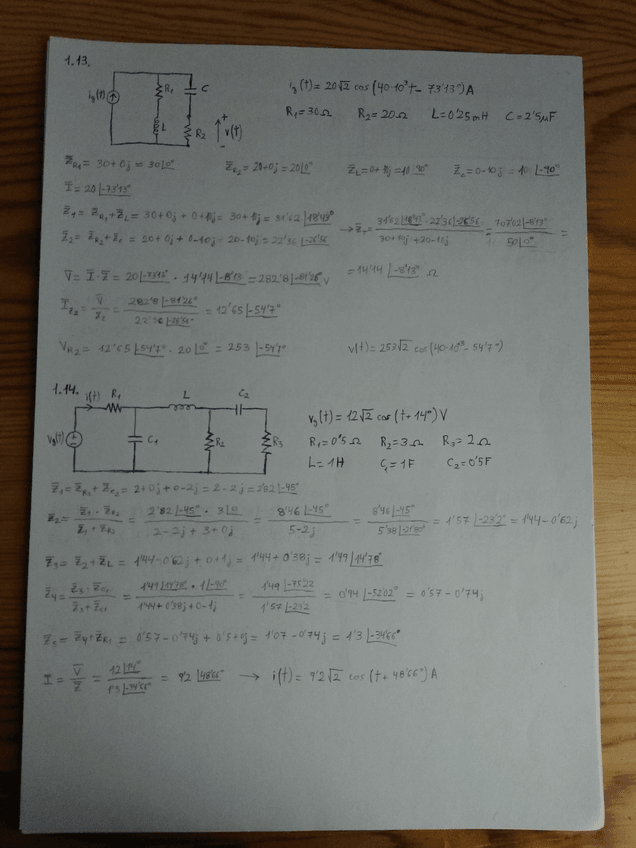 1.13.
i_g(t) = 20√2 cos(40·10³t - 73'13°) A
R₁ = 30Ω R₂ = 20Ω L = 0'25mH C = 2'5μF
i_g(t) R₁ C
L R₂ + v(t) -
Z̄_R1 = 30+0j = 30|0° Z̄_R2 = 20+0j = 20|0° Z̄_L = 0+10j = 10|90° Z̄_c = 0-10j = 10|-90°
Ī = 20|-73'13°
Z̄₁ = Z̄_R1 + Z̄_L = 30+0j + 0+10j = 30+10j = 31'62|18'43°
Z̄₂ = Z̄_R2 + Z̄_c = 20+0j + 0-10j = 20-10j = 22'36|-26'56
= 14'14|-8'13° Ω
V̄ = Ī·Z̄ = 20|-73'13° · 14'14|-8'13 = 282'8|-81'26° V
Ī_Z2 = V̄/Z̄₂ = 282'8|-81'26°/22'36|-26'56° = 12'65|-54'7°
V̄_R2 = 12'65|-54'7° · 20|0° = 253|-54'7° v(t) = 253√2 cos(40·10³ - 54'7°)
1.14.
i(t) R₁ L C₂
v_g(t) C₁ R₂ R₃
v_g(t) = 12√2 cos(t+14°) V
R₁ = 0'5Ω R₂ = 3Ω R₃ = 2Ω
L = 1H C₁ = 1F C₂ = 0'5F
= 2+0j + 0-2j = 2-2j = 2'82|-45°
Z̄₂ = = 2'82|-45° · 3|0/2-2j + 3+0j = 8'46|-45°/5-2j = 8'46|-45/5'38|-21'80° = 1'57|-23'2° = 1'44-0'62j
Z̄₃ = Z̄₂ + Z̄_L = 1'44-0'62j + 0+1j = 1'44+0'38j = 1'49|14'78°
Z̄₄ = Z̄₃·Z̄_C1/Z̄₃+Z̄_C1 = 1'49|14'78° · 1|-90°/1'44+0'38j+0-1j = 1'49|-75'22/1'57|-23'2 = 0'94|-52'02° = 0'57-0'74j
Z̄₅ = Z̄₄ + Z̄_R1 = 0'57-0'74j + 0'5+0j = 1'07-0'74j = 1'3|-34'66°
Ī = V̄/Z̄ = 12|14°/1'3|-34'66° = 9'2|48'66° → i(t) = 9'2√2 cos(t+48'66°) A